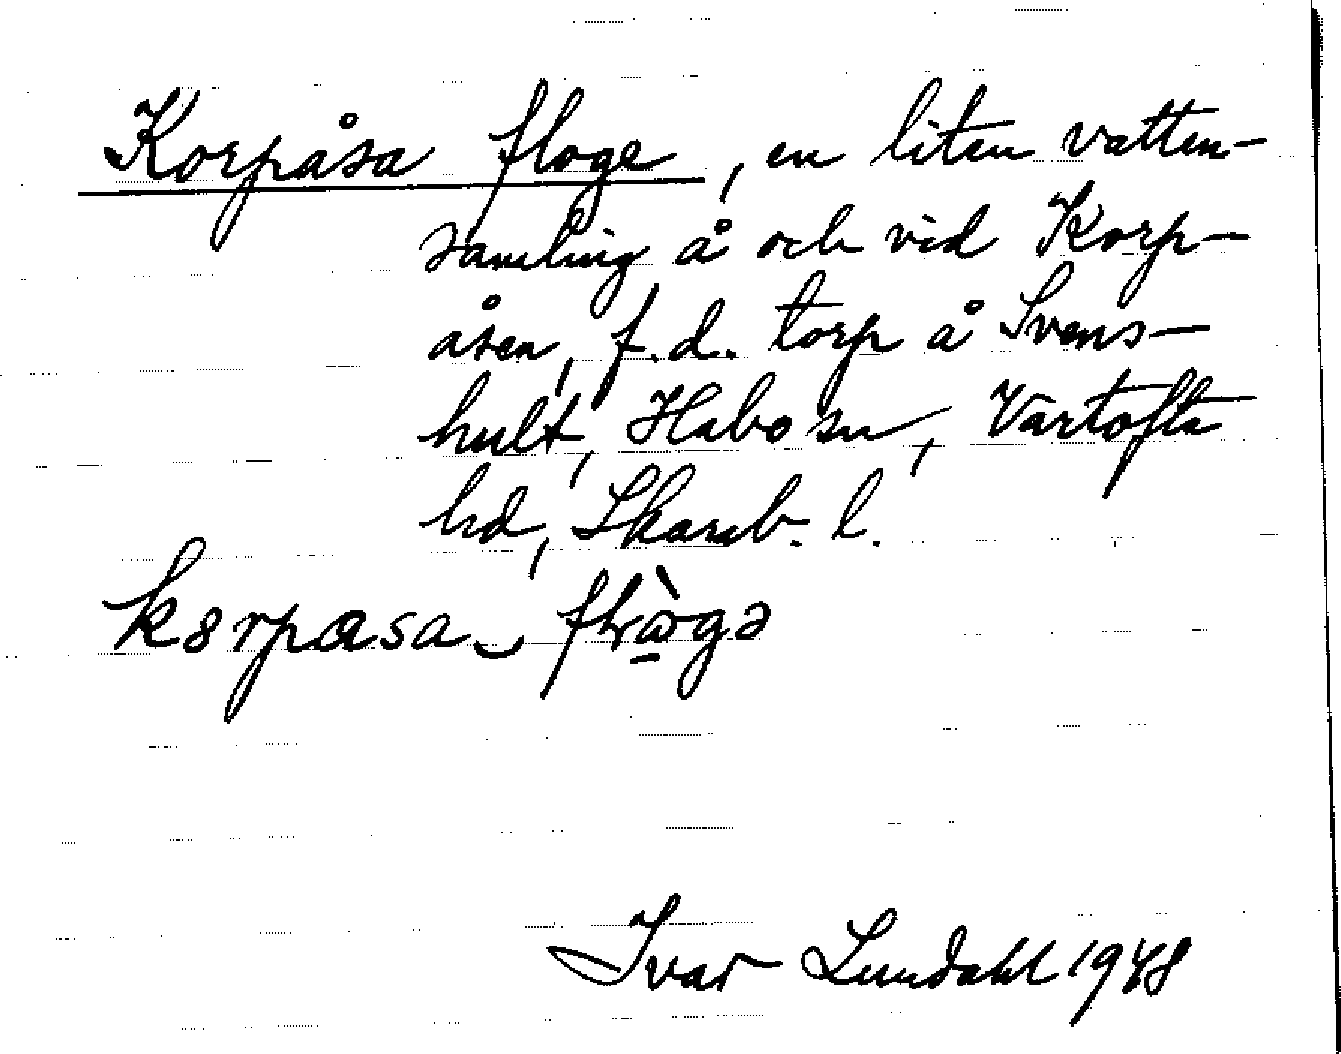 Korpåsa floge, en liten vatten-
samling å och vid Korp-
åsen, f.d. torp å Svens-
hult, Habo sn, Vartofta
hd, Skarab. l.
Ivar Lundahl 1948